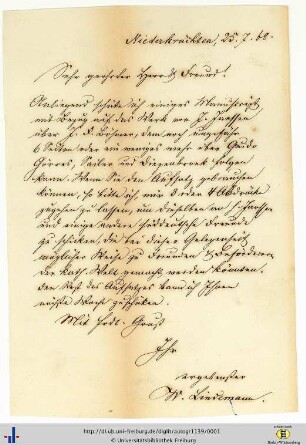 Niederkrüchten, 25. 7. 68.
Sehr geehrter Herr & Freund!
Anliegend schicke ich einiges Manuscript
mit Bezug auf das Werk von J. Janssen
über J. F. Böhmer, dem noch ungefähr
6 Seiten oder ein weniges mehr über Guido
Görres, Sailer und Diepenbrock folgen
kann. Wenn Sie den Aufsatz gebrauchen
können, so bitte ich, mir 3 oder 4 Abdrücke
zugehen zu lassen, um dieselben an J. Janssen
und einige andere süddeutsche Freunde
zu schicken, die bei dieser Gelegenheit
möglicher Weise zu Freunden & Beförderern
der kath. Welt gemacht werden könnten.
Den Rest des Aufsatzes kann ich Ihnen
nächste Woche zuschicken.
Mit Gruß
Ihr
ergebenster
W. Lindemann.
http://dl.ub.uni-freiburg.de/diglit/autogr1139/0001
© Universitätsbibliothek Freiburg